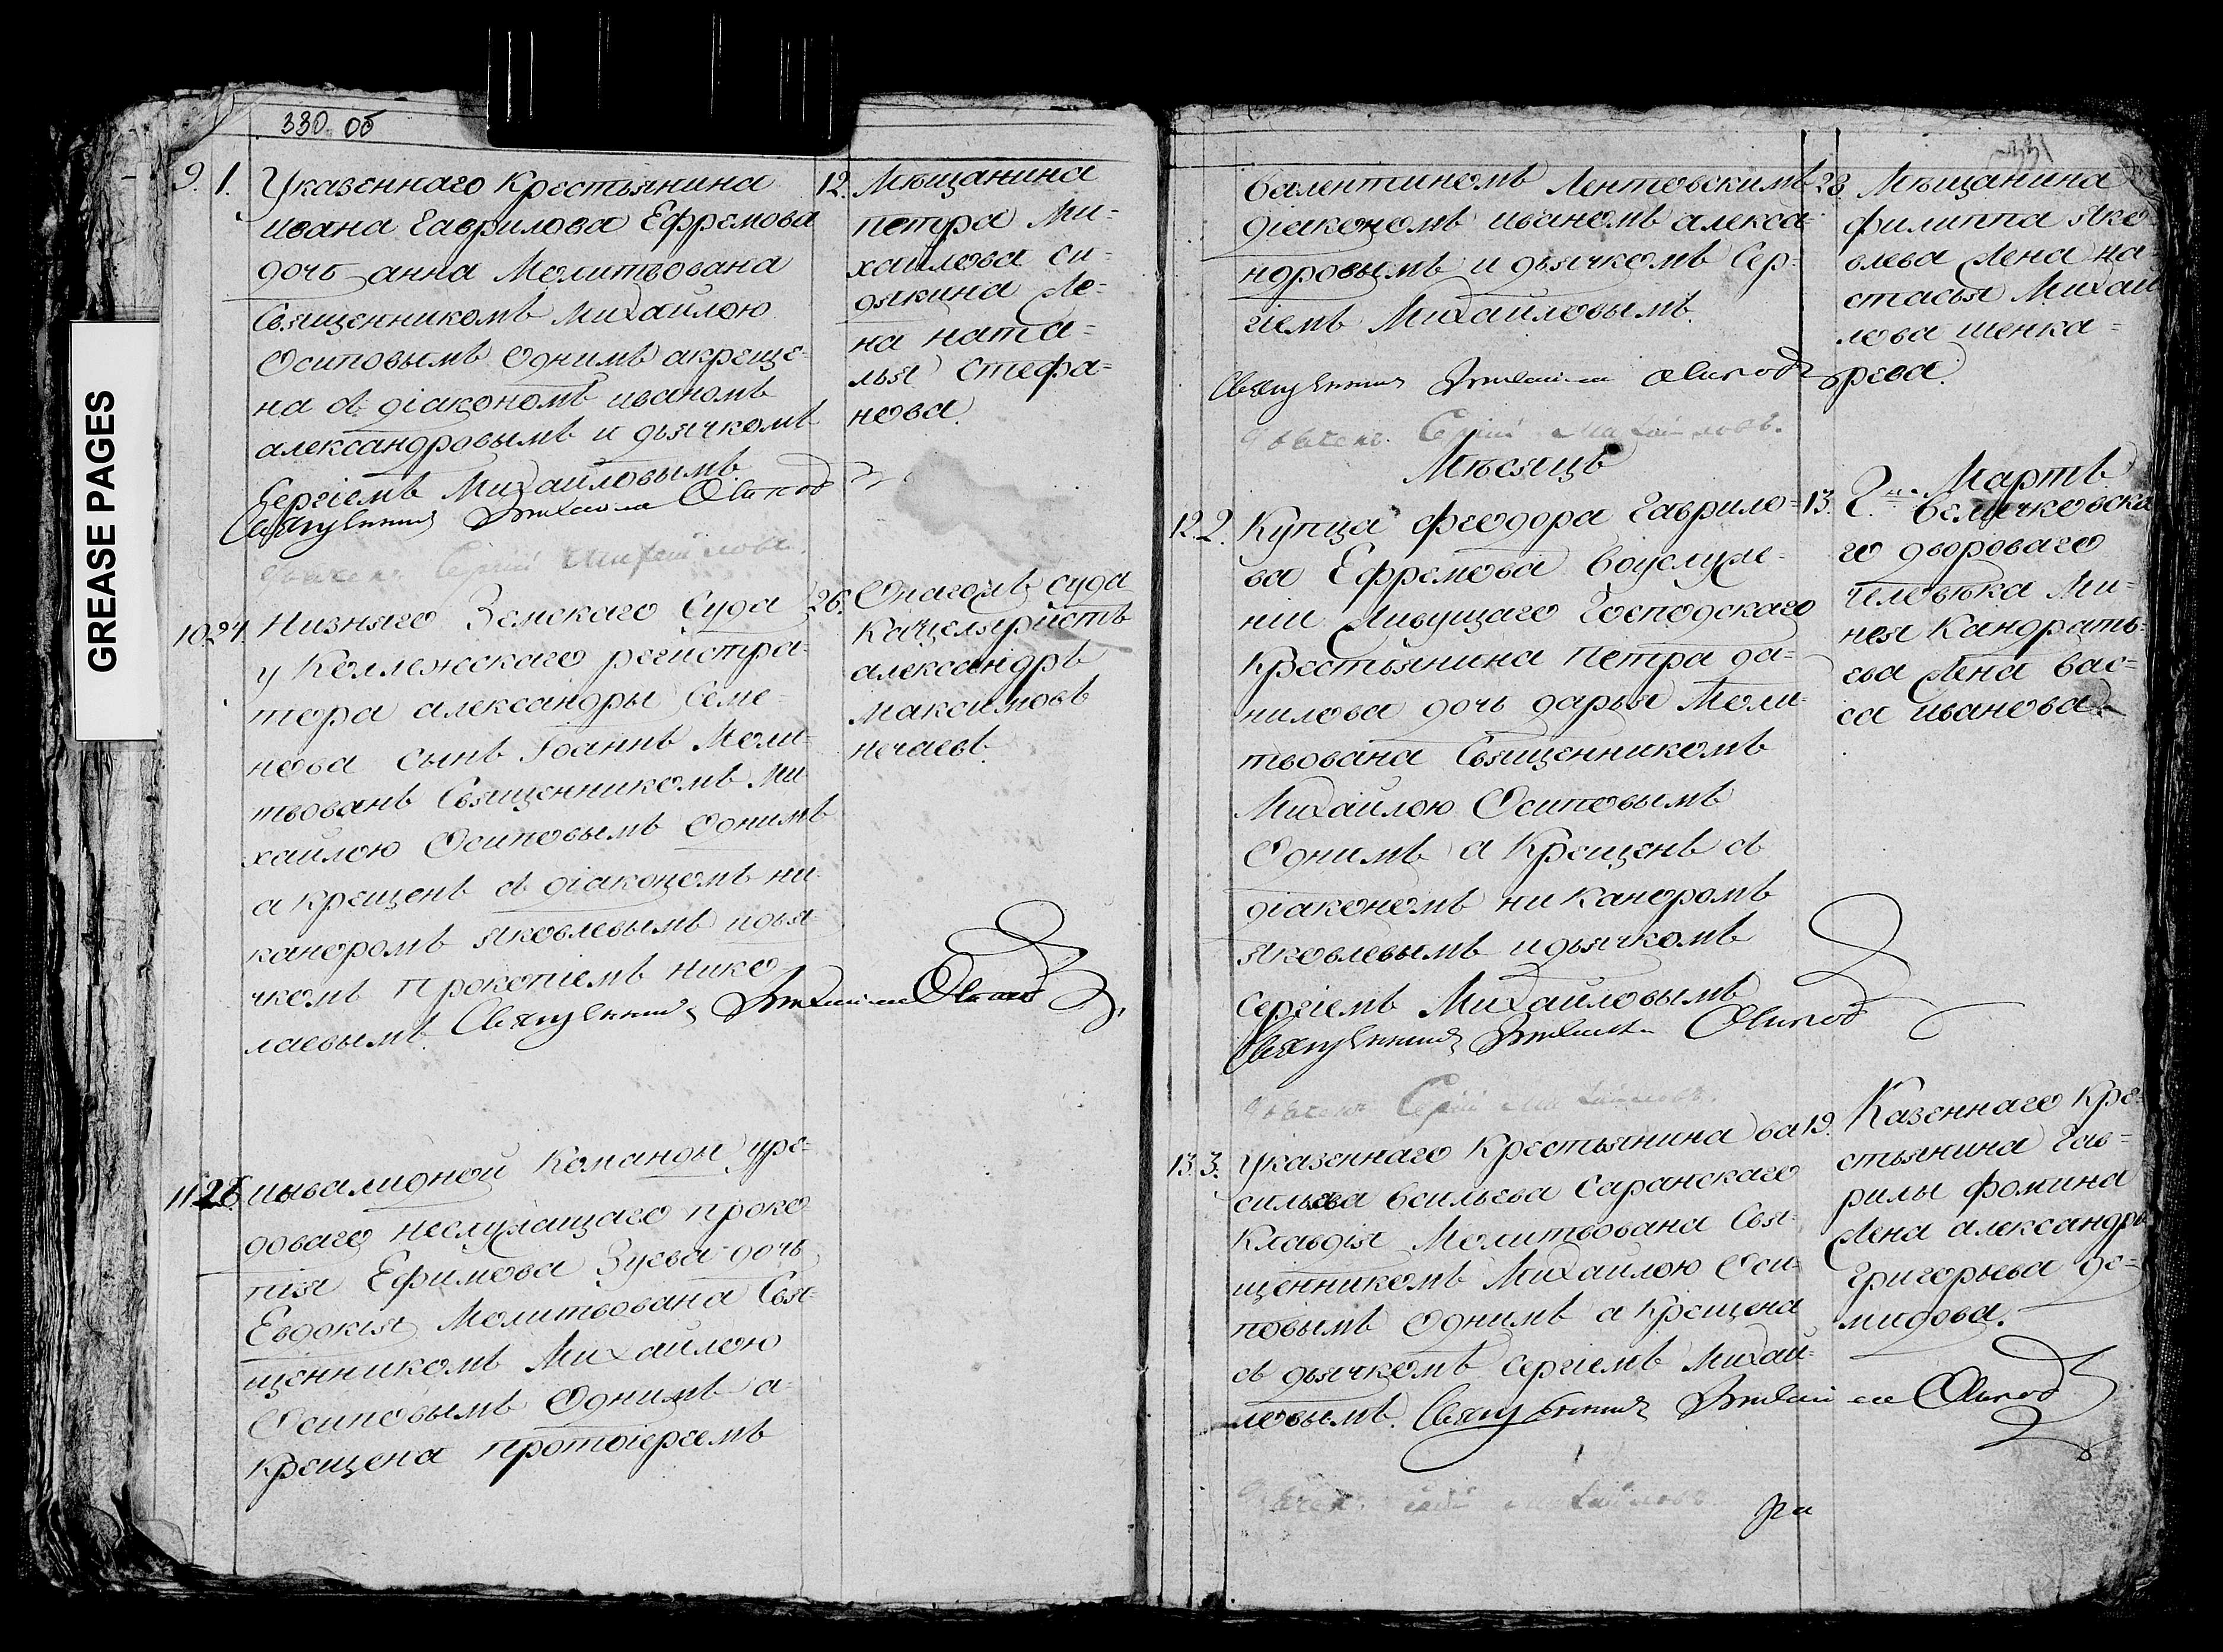 330 об
GREASE PAGES
9. 1. Указеннаго Крестьянина
ивана Гаврилова Ефремова
дочь анна Молитвована
Священникомъ Михайлою
Осиповымъ Однимъ акреще-
на съ діакономъ иваномъ
александровымъ и дьячкомъ
Сергіемъ Михайловымъ.
Священникъ Михаила Осиповъ
дьячекъ Сергій Михайловъ.
12. Мѣщанина
петра Ми-
хайлова си-
дякина Же-
на ната-
лья Стефа-
нова.
10. 24. Нижняго Земскаго Суда
у Коллежскаго регистра-
тора александры Семе-
нова сынъ Іоаннъ Моли-
твованъ Священникомъ Ми-
хайлою Осиповымъ Однимъ
а крещенъ съ діакономъ ни-
каноромъ яковлевымъ идья-
чкомъ Прокопіемъ нико-
лаевымъ. Священникъ Михаила Осиповъ
26. Онагожъ суда
Канцеляристъ
александръ
Максимовъ
нечаевъ.
11. 26. инвалидной Команды уре-
доваго неслужащаго проко
пія Ефимова Зуева дочь
Евдокія Молитвована Свя-
щенникомъ Михайлою
Осиповымъ Однимъ а-
крещена протоіереемъ
валентиномъ Лентовскимъ
діакономъ иваномъ алекса-
ндровымъ и дьячкомъ Сер-
гіемъ Михайловымъ.
Священникъ Михаила Осиповъ
дьячекъ Сергій Михайловъ.
28. Мѣщанина
филиппа яко-
влева Жена на-
стасья Михай
лова шенка-
рева.
Мѣсяцъ Мартъ
12. 2. Купца феодора Гаврило-
ва Ефремова воуслуже-
ніи Живущаго Господскаго
Крестьянина петра да-
нилова дочь дарья Моли-
твована Священникомъ
Михайлою Осиповымъ
Однимъ а Крещенъ съ
діакономъ никаноромъ
яковлевымъ идьячкомъ
Сергіемъ Михайловымъ
Священникъ Михаила Осиповъ
дьячекъ Сергій Михайловъ.
13. Г. на Величковска
го двороваго
человѣка Ми-
нея Кандрать-
ева Жена вас-
са иванова
13. 3. Указеннаго Крестьянина ва
сильева Всильева Саранскаго
Клавдія Молитвована Свя-
щенникомъ Михайлою Оси-
повымъ Однимъ а Крещена
съ дьячкомъ Сергіемъ Михай-
ловымъ. Священникъ Михаила Осиповъ
дьячекъ Михайловъ.
19. Казеннаго Кре-
стьянина Гав-
рилы фомина
Жена александра
григорьева де-
мидова.
ра